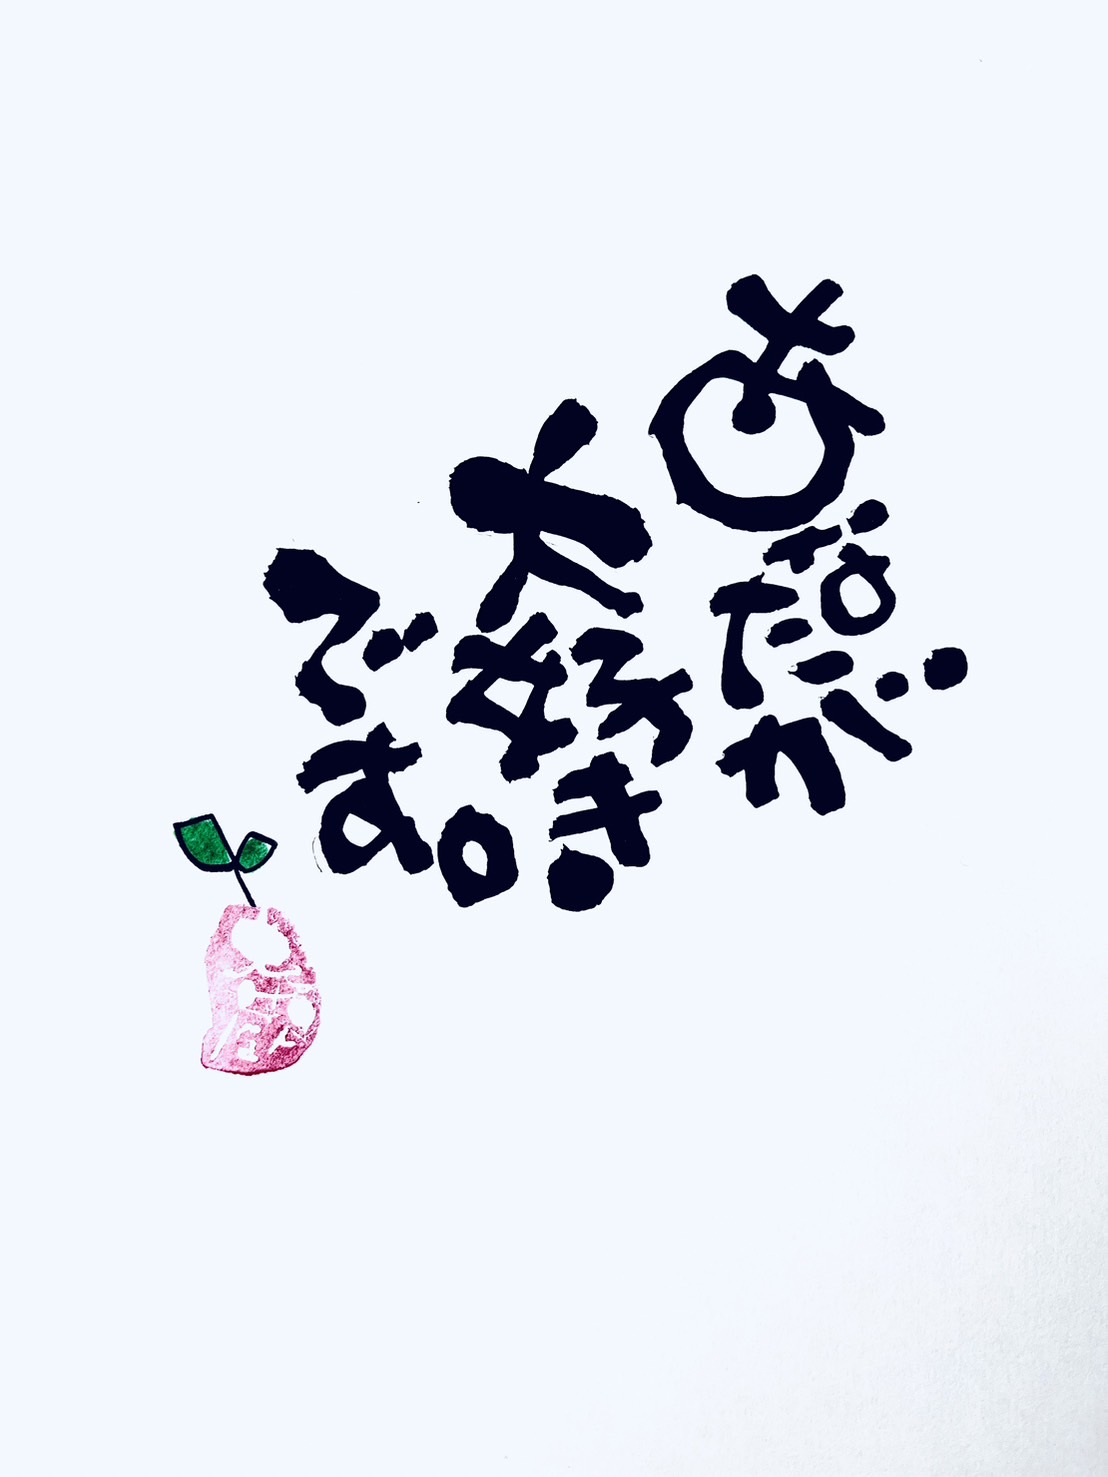 あなたが
大好き
です。